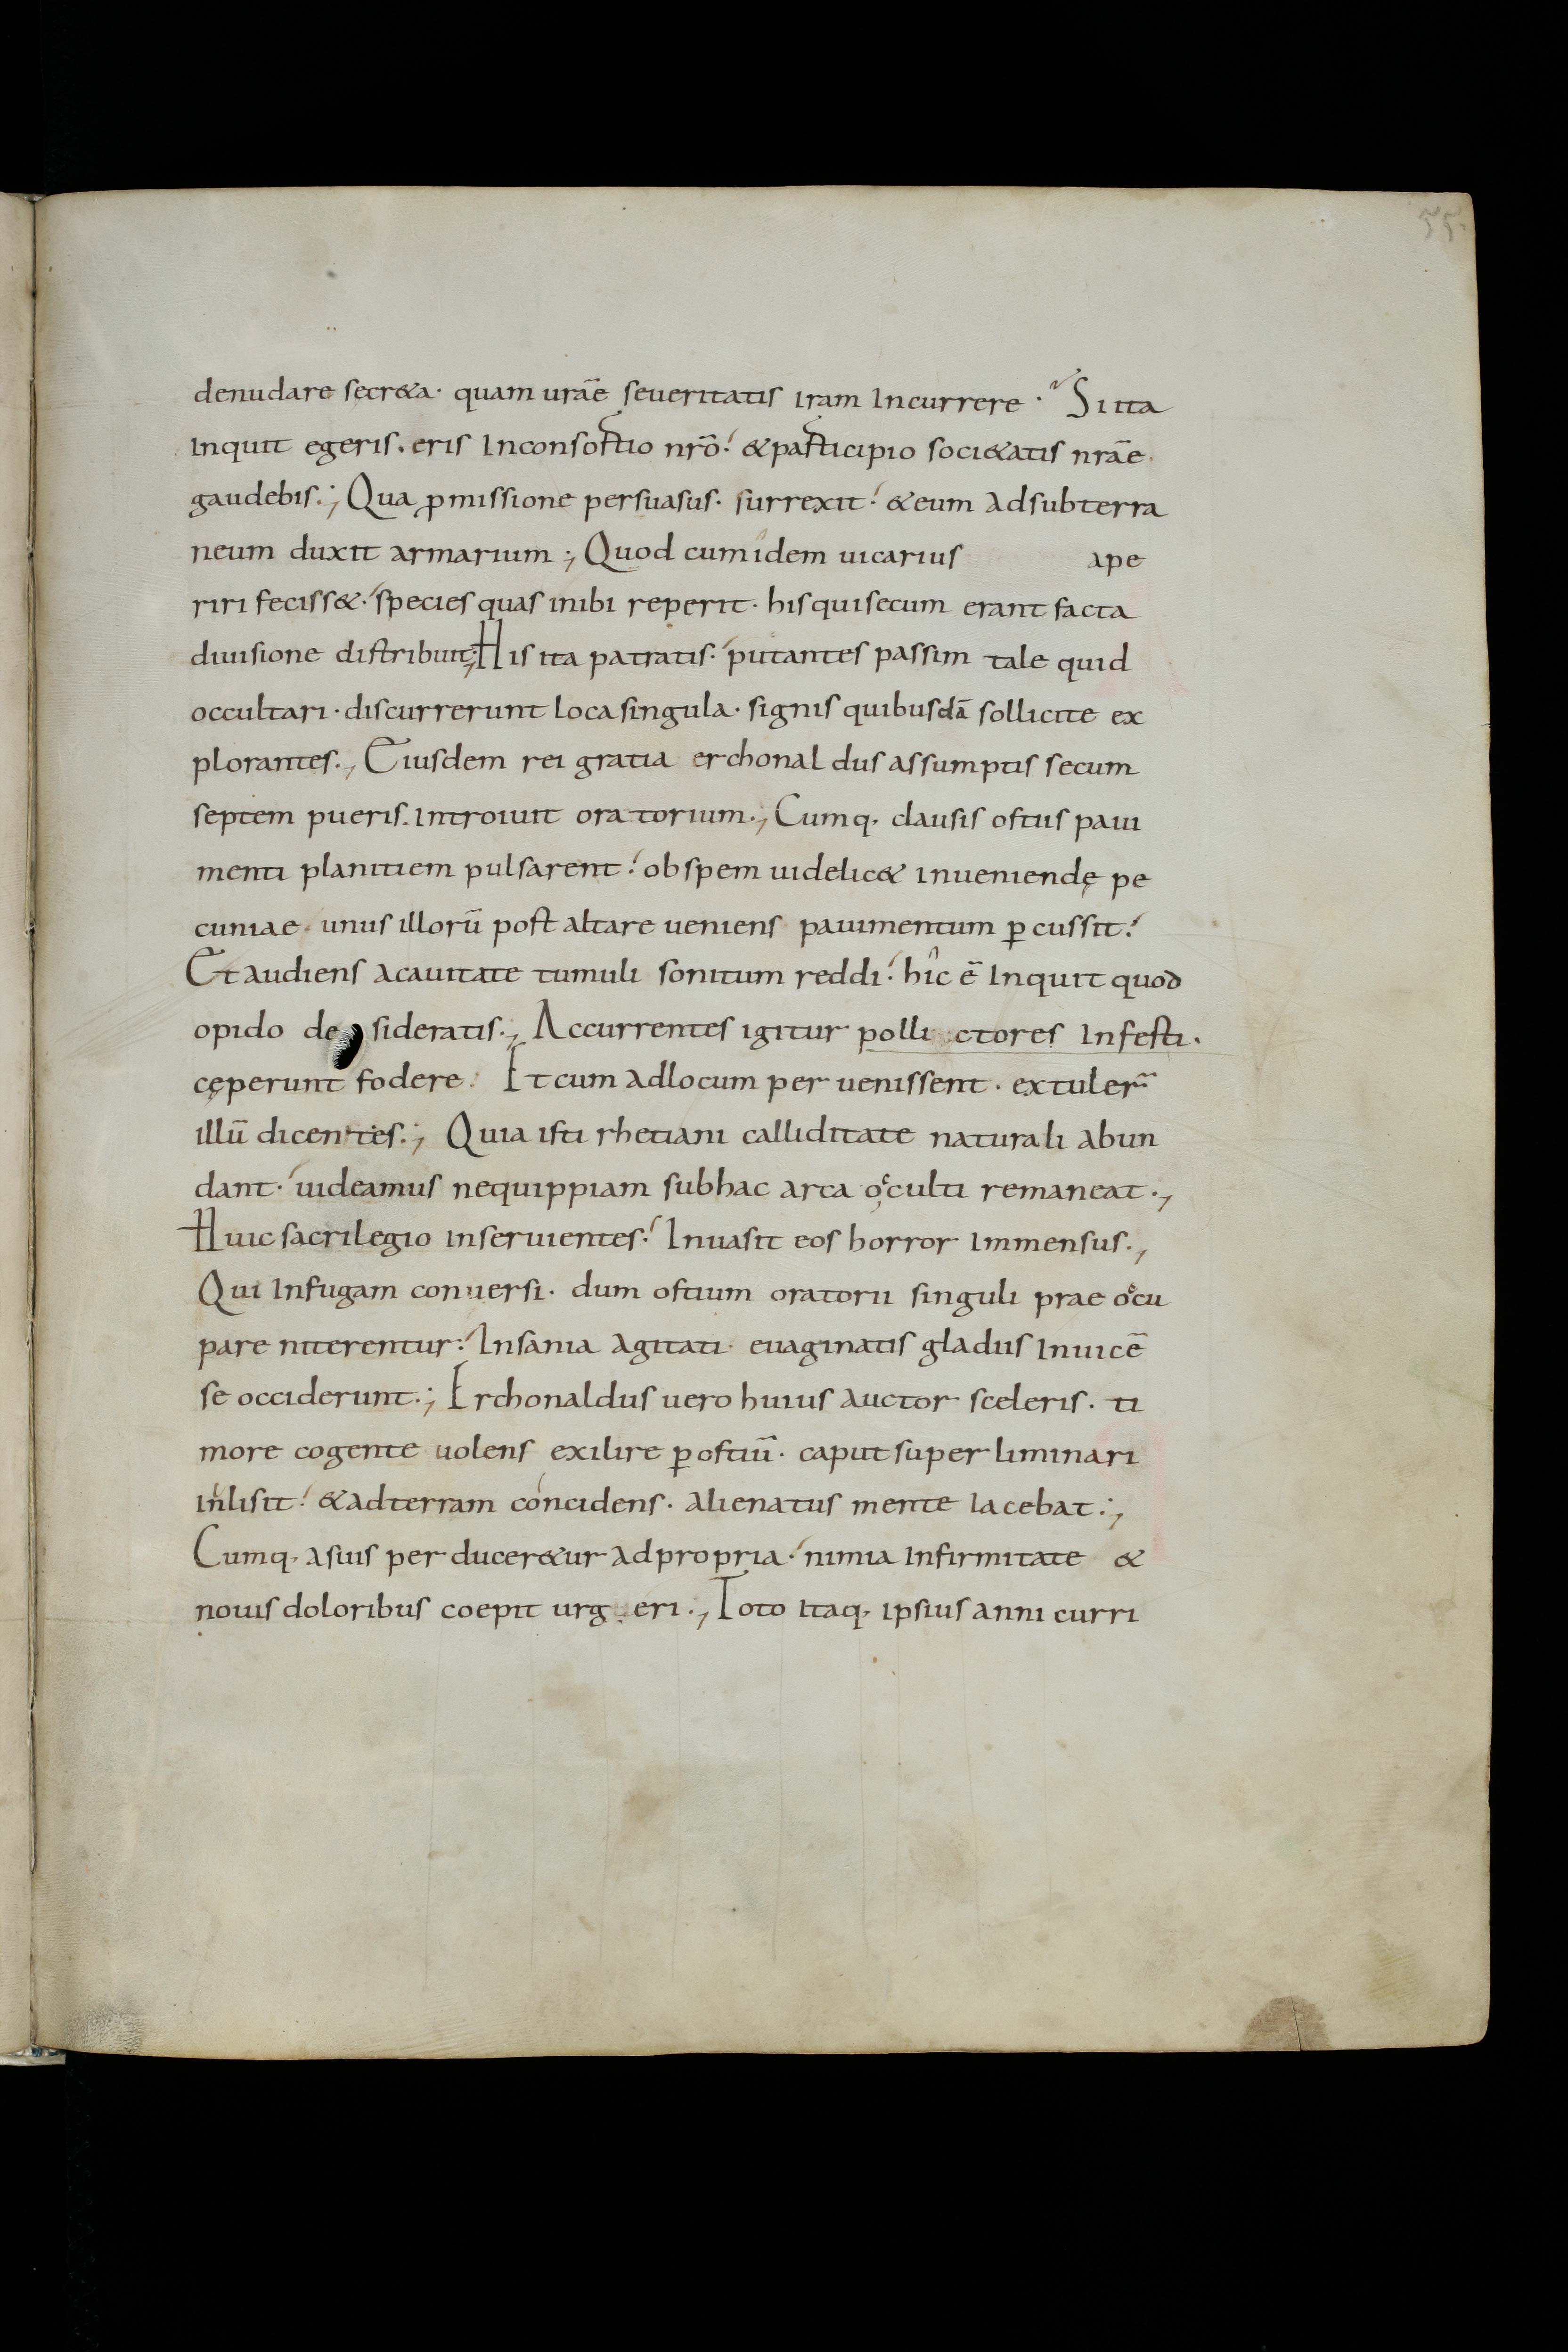 55.
denudare secr&a· quam urāe seueritatis iram incurrere · Si ita
inquit egeris. eris inconsortio nrō· &participio soci&atis nrāe·
gaudebis·; Qua ꝓmissione persuasus· surrexit· &eum adsubterra
neum duxit armarium·; Quod cumidem uicarius ape
riri feciss&· species quas inibi reperit· hisquisecum erant facta
diuisione distribuit; His ita patratis· putantes passim tale quid
occultari· discurrerunt locasingula· signis quibusdā sollicite ex
plorantes·; Eiusdem rei gratia erchonaldus assumptis secum
septem pueris. introiuit oratorium·; Cumq· clausis ostiis paui
menti planitiem pulsarent· obspem uidelic& inueniendę pe
cuniae· unus illorū post altare ueniens pauimentum ꝑcussit·
Et audiens acauitate tumuli sonitum reddi· hic ē inquit quod
opido desideratis·; Accurrentes igitur pollictores infesti·
cęperunt fodere· Et cum adlocum peruenissent· extuler̄
illū dicentes·; Quia isti rhetiani calliditate naturali abun
dant· uideamus nequippiam subhac arca occulti remaneat·;
Huic sacrilegio inseruientes· Inuasit eos horror immensus·;
Qui infugam conuersi· dum ostium oratorii singuli prae occu
pare niterentur· Insania agitati· euaginatis gladiis inuicē
se occiderunt·; Erchonaldus uero huius auctor sceleris· ti
more cogente uolens exilire ꝑostiū· caput superliminari
inlisit· &adterram concidens· alienatus mente iacebat·;
Cumq· asuis perducer&ur adpropria· nimia infirmitate &
nouis doloribus coepit urgeri·; Toto itaq· ipsius anni curri